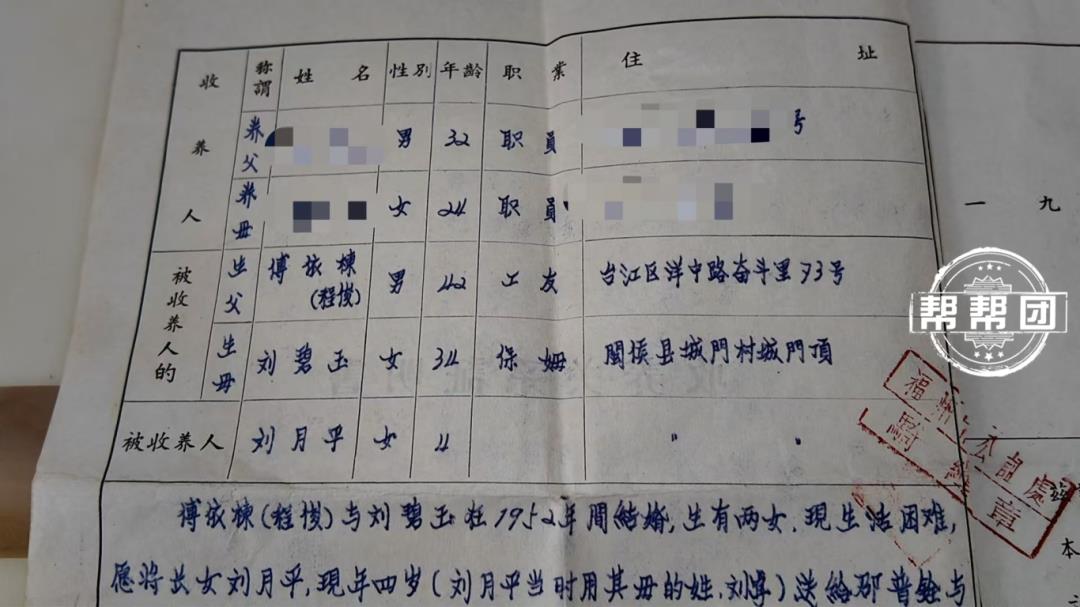 收养人 称謂 姓名 性别 年龄 职業 住址
养父 男 32 职員 号
养母 女 24 职員
被收养人的 生父 傅依棟(程俊) 男 42 工友 台江区洋中路奋斗里73号
生母 刘碧玉 女 34 保姆 閩侯县城門村城門頂
被收养人 刘月平 女 4 〃 〃
傅依棟(程俊)与刘碧玉在1952年間結婚,生有两女.現生活困难,
愿将长女刘月平,現年四岁(刘月平当时用其母的姓.刘) 送給邢普銓与
一九
帮帮团
福州 公証處
章
本